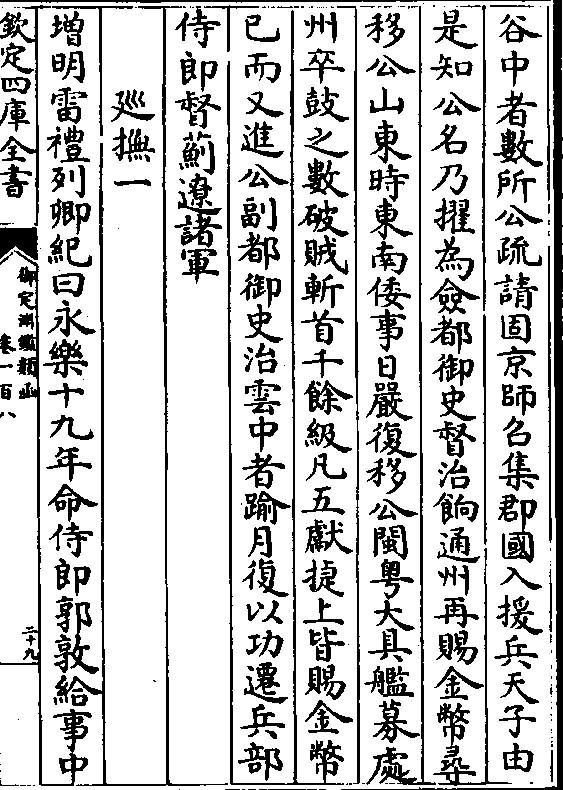 谷中者數所公疏請固京師召集郡國入援兵天子由
是知公名乃擢為僉都御史督治餉通州再賜金幣尋
移公山東時東南倭事日嚴復移公閩粤大具艦募處
州卒鼓之數破賊斬首千餘級凡五獻捷上皆賜金幣
已而又進公副都御史治雲中者踰月復以功遷兵部
侍郎督薊遼諸軍
廵撫一
増明雷禮列卿紀曰永樂十九年命侍郎郭敦給事中
欽定四庫全書
御定淵鑑類函
卷一百八
二十九